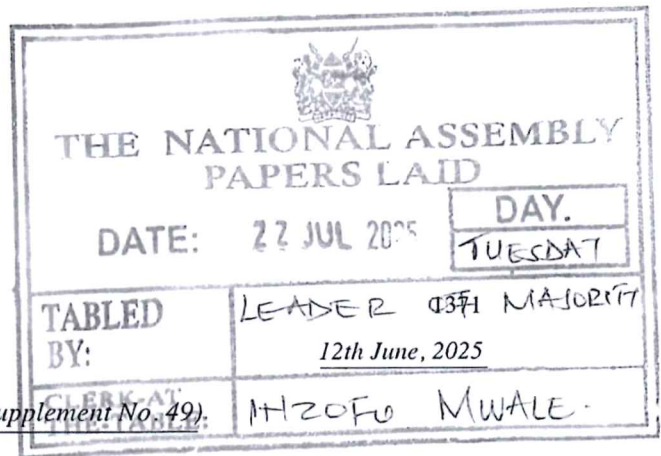 THE NATIONAL ASSEMBLY
PAPERS LAID
DATE: 22 JUL 2025
DAY.
TUESDAY
TABLED BY:
LEADER MAJORITY
12th June, 2025
CLERK-AT
THE-TABLE:
upplement No. 49).
INZOFU MWALE.